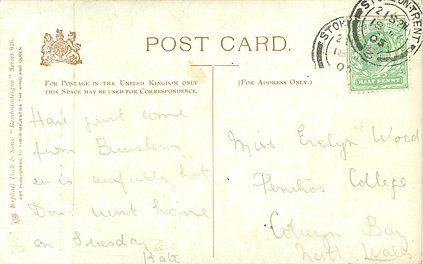 POST CARD.
FOR POSTAGE IN THE UNITED KINGDOM ONLY
THIS SPACE MAY BE USED FOR CORRESPONDENCE.
(FOR ADDRESS ONLY.)
Raphael Tuck & Sons' "Rembrandtesque" Series 916.
ART PUBLISHERS TO THEIR MAJESTIES THE KING AND QUEEN.
STOKE-ON-TRENT
HALF PENNY
Have just come
from Burslem
it is awfully hot
went home
on Tuesday
Kate
Miss Evelyn Wood
Penrhos College
Colwyn Bay
North Wales